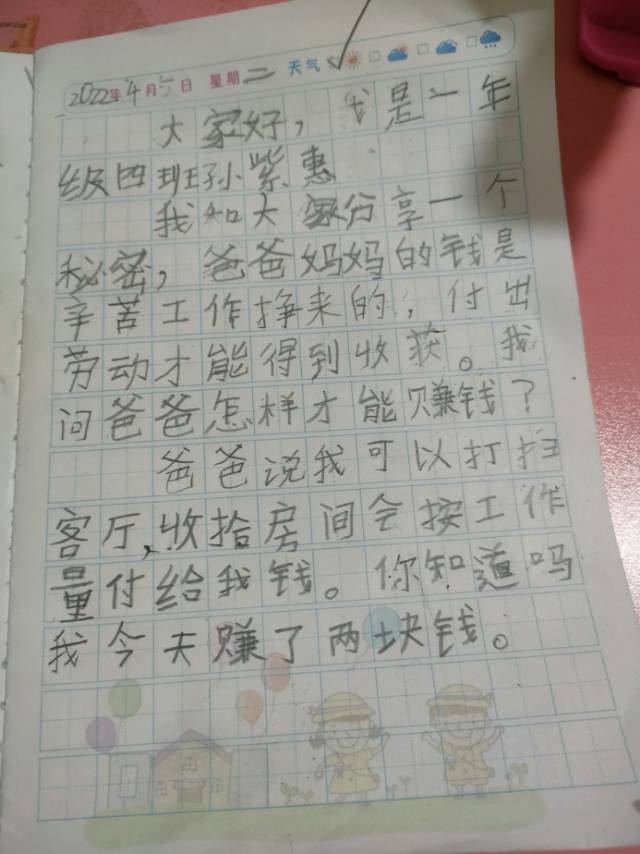 2022年4月5日 星期二 天气
大家好，我是一年
级四班孙紫惠
我知大家分享一个
秘密，爸爸妈妈的钱是
辛苦工作挣来的，付出
劳动才能得到收获。我
问爸爸怎样才能赚钱？
爸爸说我可以打扫
客厅，收拾房间会按工作
量付给我钱。你知道吗
我今天赚了两块钱。